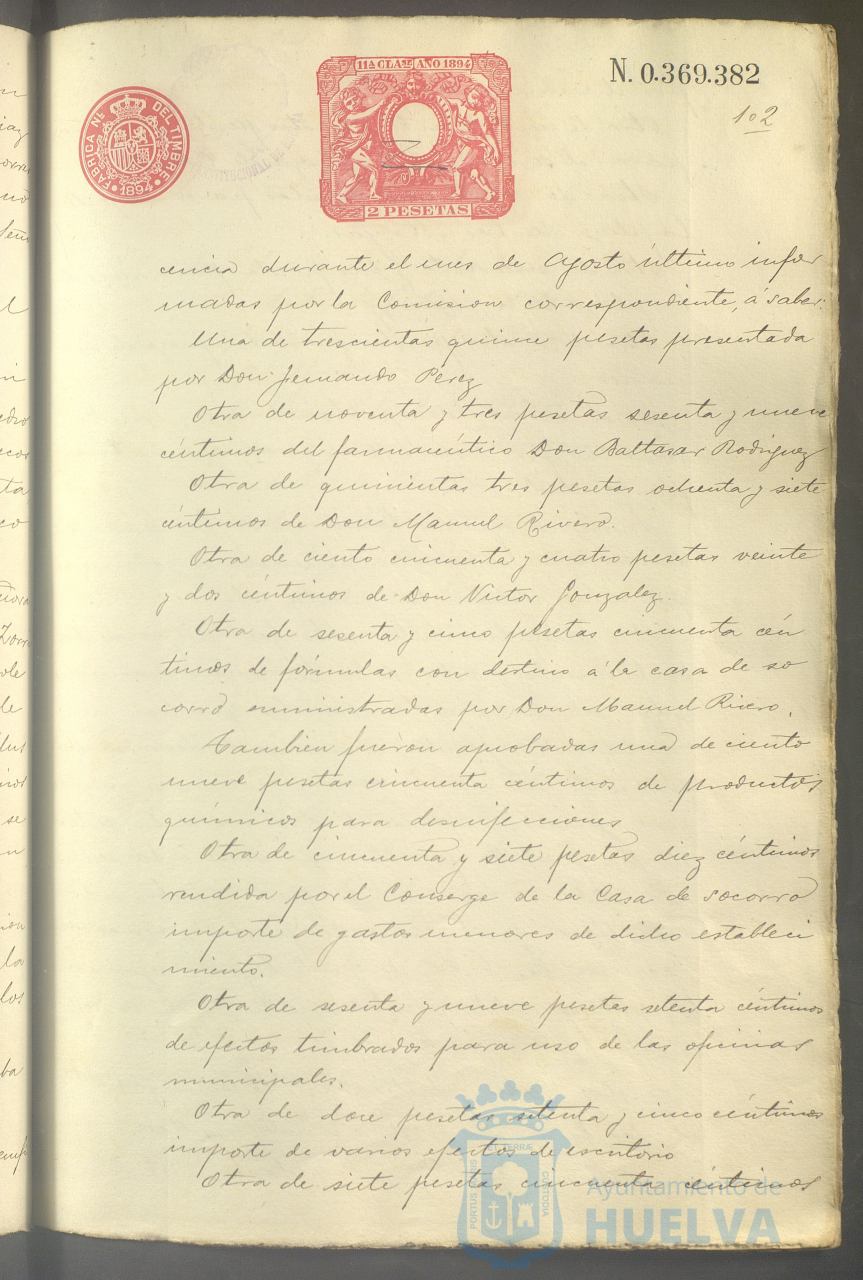 11ª CLASE AÑO 1894
N. 0.369.382
102
FABRICA Nal. DEL TIMBRE
1894
2 PESETAS
cencia durante el mes de Agosto último infor
madas por la Comision correspondiente, á saber:
Una de trescientas quince pesetas presentada
por Don Fernando Perez
Otra de noventa y tres pesetas sesenta y nueve
céntimos del farmacéutico Don Baltasar Rodriguez
Otra de quinientas tres pesetas ochenta y siete
céntimos de Don Manuel Rivero.
Otra de ciento cincuenta y cuatro pesetas veinte
y dos céntimos de Don Victor Gonzalez.
Otra de sesenta y cinco pesetas cincuenta cén
timos de fórmulas con destino á la casa de so
corro suministradas por Don Manuel Rivero.
Tambien fueron aprobadas una de ciento
nueve pesetas cincuenta céntimos de productos
químicos para desinfecciones
Otra de cincuenta y siete pesetas diez céntimos
rendida por el Conserge de la Casa de socorro
importe de gastos menores de dicho estableci
miento.
Otra de sesenta y nueve pesetas setenta céntimos
de efectos timbrados para uso de las oficinas
municipales.
Otra de doce pesetas setenta y cinco céntimos
importe de varios efectos de escritorio
Otra de siete pesetas cincuenta céntimos
PORTUS MARIS ET TERRÆ CUSTODIA
Ayuntamiento de
HUELVA